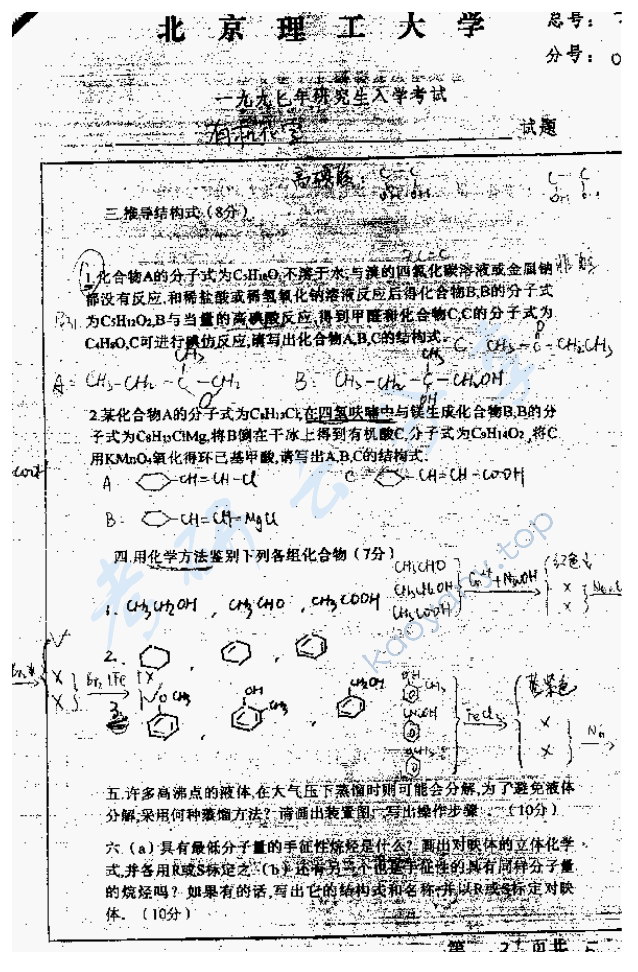 北京理工大学
总号：
分号：0
一九九七年研究生入学考试
有机化学 试题
高碘酸：
三.推导结构式(8分)
1.化合物A的分子式为C5H10O,不溶于水,与溴的四氯化碳溶液或金属钠
都没有反应,和稀盐酸或稀氢氧化钠溶液反应后得化合物B,B的分子式
为C5H12O2,B与当量的高碘酸反应,得到甲醛和化合物C,C的分子式为
C4H8O,C可进行碘仿反应,请写出化合物A,B,C的结构式.
C: CH3-C-CH2CH3
O
A = CH3-CH2-C-CH2
CH3
O
B: CH3-CH2-C-CH2OH
CH3
OH
2.某化合物A的分子式为C8H13Cl,在四氢呋喃中与镁生成化合物B,B的分
子式为C8H13ClMg,将B倒在干冰上得到有机酸C,分子式为C9H14O2,将C
用KMnO4氧化得环己基甲酸,请写出A,B,C的结构式.
A -CH=CH-Cl
C -CH=CH-COOH
B: -CH=CH-MgCl
四.用化学方法鉴别下列各组化合物(7分)
1. CH3CH2OH , CH3CHO , CH3COOH
CH3CHO
CH3CH2OH
CH3COOH
Cu2+ + NaOH
红色↓
×
×
2. , ,
Br2/Fe
3. OCH3 , OH CH3 , CH2OH
FeCl3
蓝紫色
×
×
Na
五.许多高沸点的液体,在大气压下蒸馏时则可能会分解,为了避免液体
分解,采用何种蒸馏方法?请画出装置图,写出操作步骤.(10分)
六.(a)具有最低分子量的手征性烷烃是什么?画出对映体的立体化学
式,并各用R或S标定之.(b)还有另一个也是手征性的具有同样分子量
的烷烃吗?如果有的话,写出它的结构式和名称,并以R或S标定对映
体.(10分)
第 2 页共 5
考研云分享
kaoyany.top